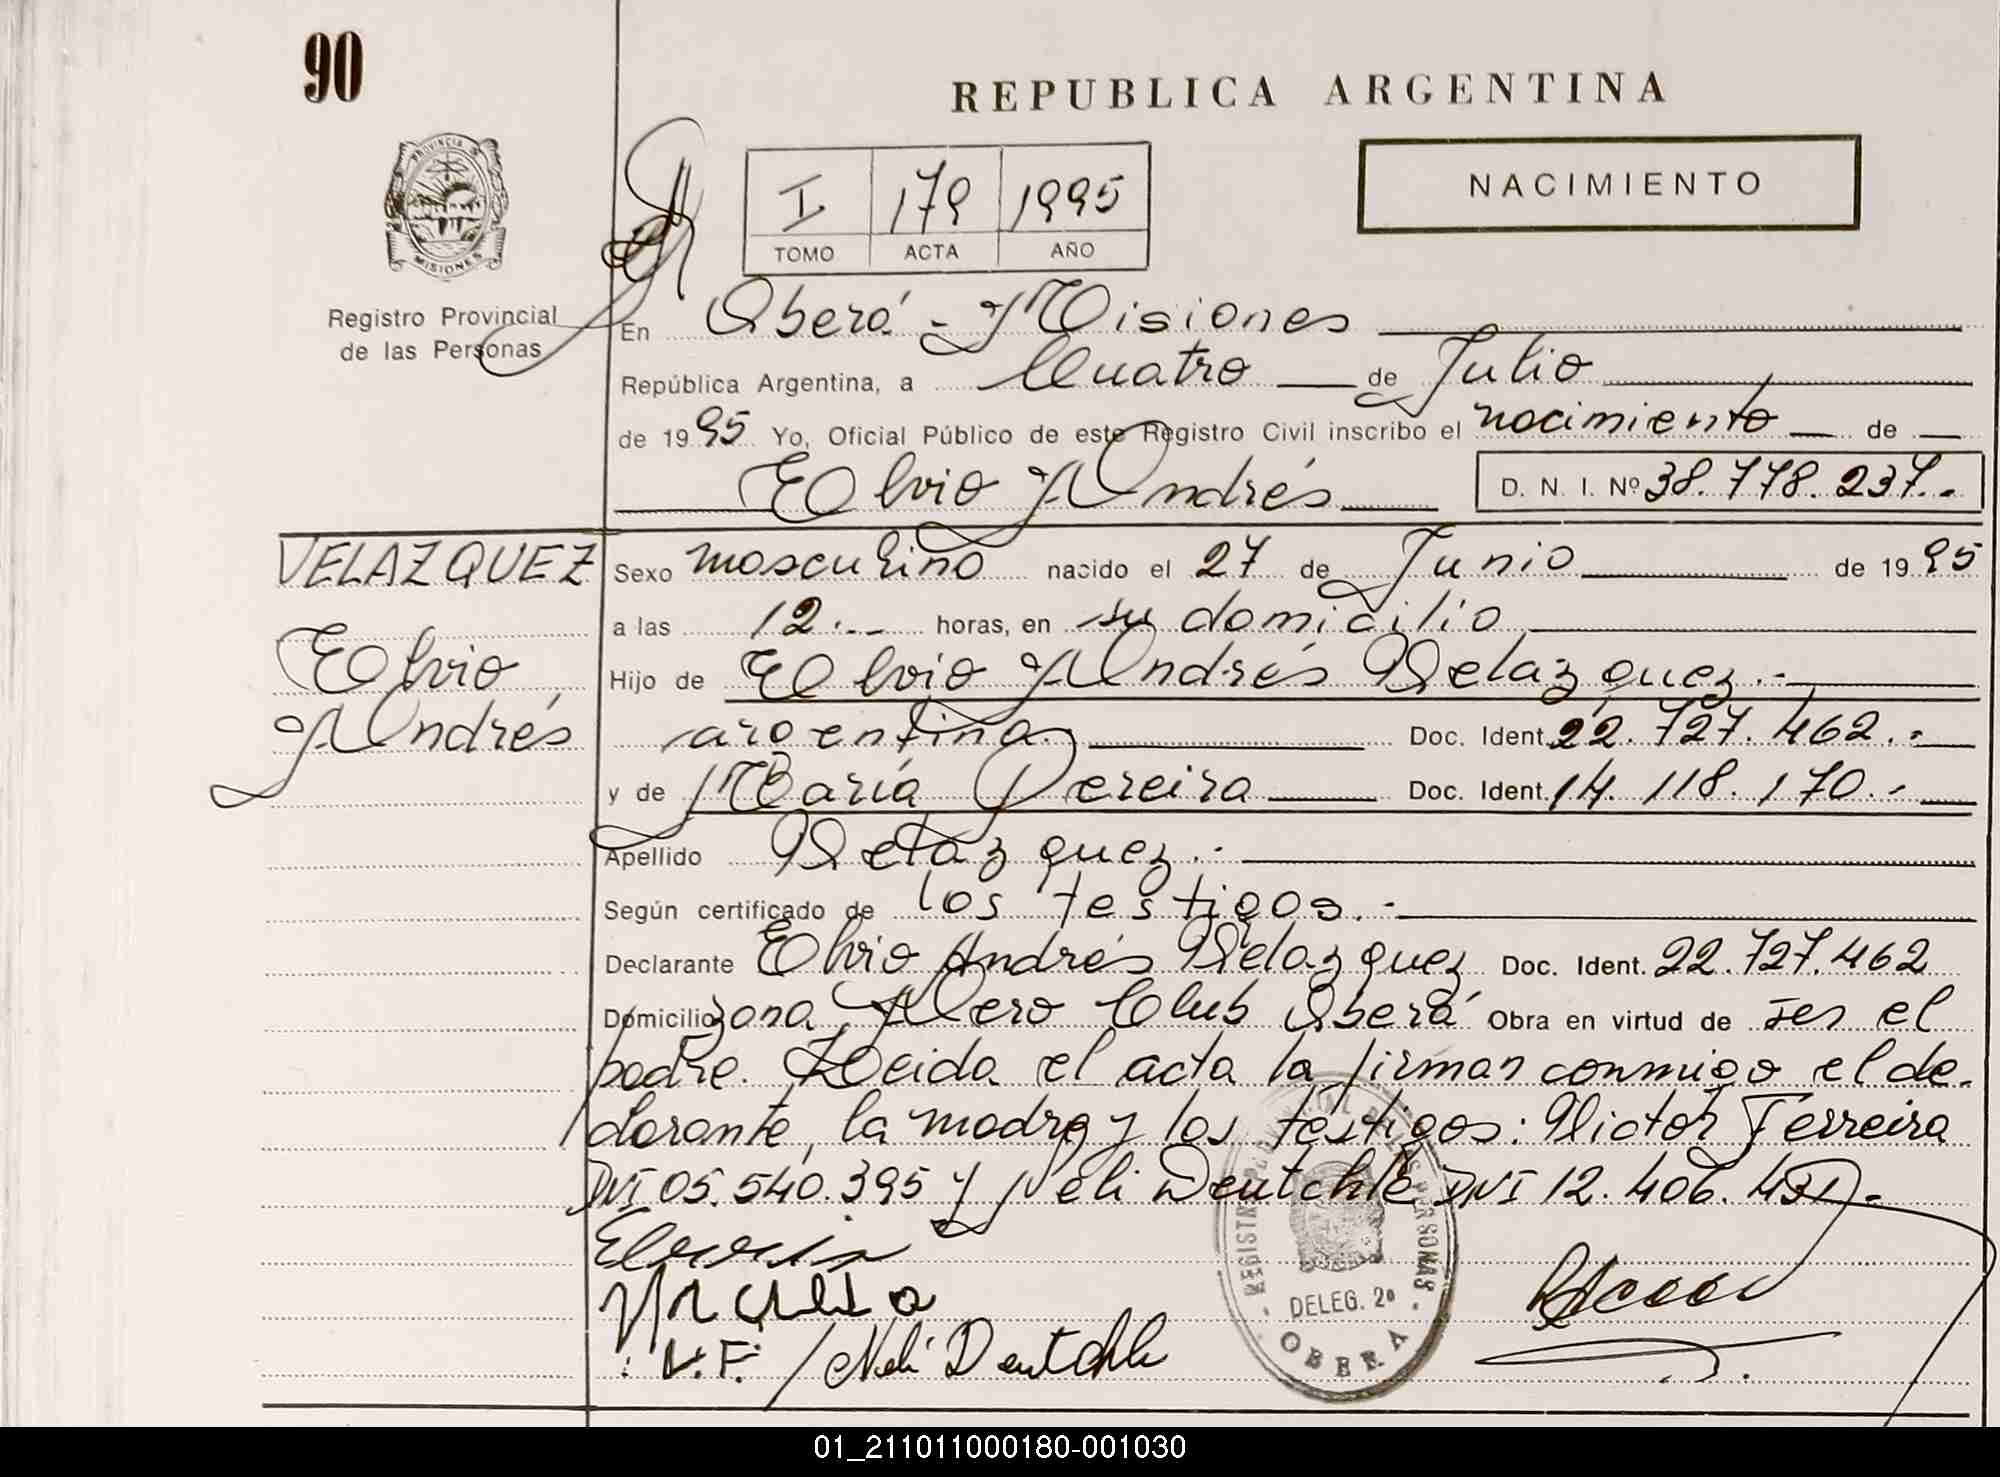 90
REPUBLICA ARGENTINA
PROVINCIA DE
MISIONES
Registro Provincial
de las Personas
I 179 1995
TOMO ACTA AÑO
NACIMIENTO
En Oberá - Misiones
República Argentina, a Cuatro de Julio
de 1995 Yo, Oficial Público de este Registro Civil inscribo el nacimiento de
Elvio Andrés D. N. I. Nº 38.778.237.-
VELAZQUEZ
Elvio
Andrés
Sexo masculino nacido el 27 de Junio de 1995
a las 12.-- horas, en su domicilio
Hijo de Elvio Andrés Velazquez.-
argentina Doc. Ident. 22.727.462.-
y de María Pereira Doc. Ident. 14.118.170.-
Apellido Velazquez.-
Según certificado de los testigos.-
Declarante Elvio Andrés Velazquez Doc. Ident. 22.727.462
Domicilio zona Aero Club Oberá Obra en virtud de ser el
padre. Leida el acta la firman conmigo el de-
clarante, la madre y los testigos: Victor Ferreira
DNI 05.540.395 y Neli Deutchle DNI 12.406.431.-
V.F. / Neli Deutchle
REGISTRO PROVINCIAL DE LAS PERSONAS
DELEG. 2ª
OBERA
01_211011000180-001030